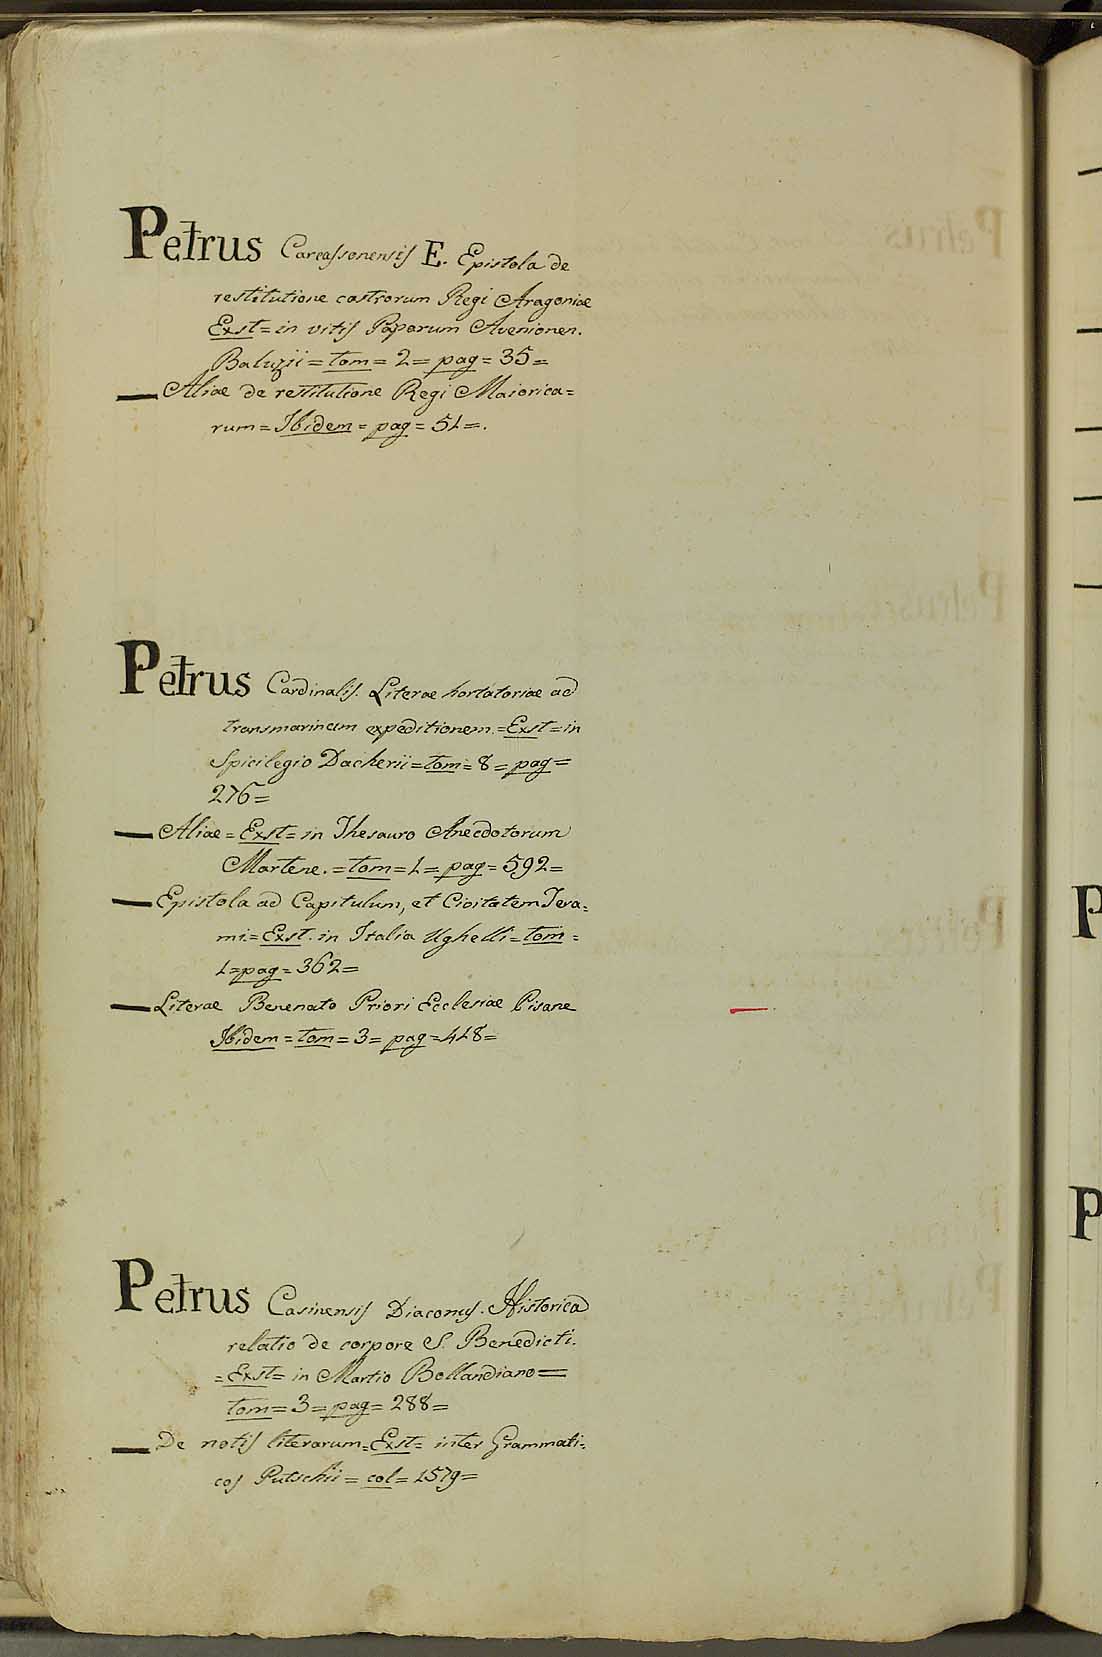 Petrus Carcassonensis E. Epistola de
restitutione castrorum Regi Aragoniae
Exst= in vitis Paparum Avenionen.
Baluzii = tom = 2 = pag = 35 =
— Aliae de restitutione Regi Maiorica=
rum = Ibidem = pag = 51 =.
Petrus Cardinalis. Literae hortatoriae ad
transmarinam expeditionem. = Exst = in
Spicilegio Dacherii = tom = 8 = pag =
276 =
— Aliae = Exst = in Thesauro Anecdotorum
Martene. = tom = 1 = pag = 592 =
— Epistola ad Capitulum, et Civitatem Tera=
mi. = Exst. in Italia Ughelli = tom =
1 = pag = 362 =
— Literae Benenato Priori Ecclesiae Pisane
Ibidem = tom = 3 = pag = 418 =
Petrus Casinensis Diaconus. Historica
relatio de corpore S. Benedicti.
= Exst = in Martio Bollandiano =
tom = 3 = pag = 288 =
— De notis literarum = Exst = inter Grammati=
cos Putschii = col = 1579 =
P
P